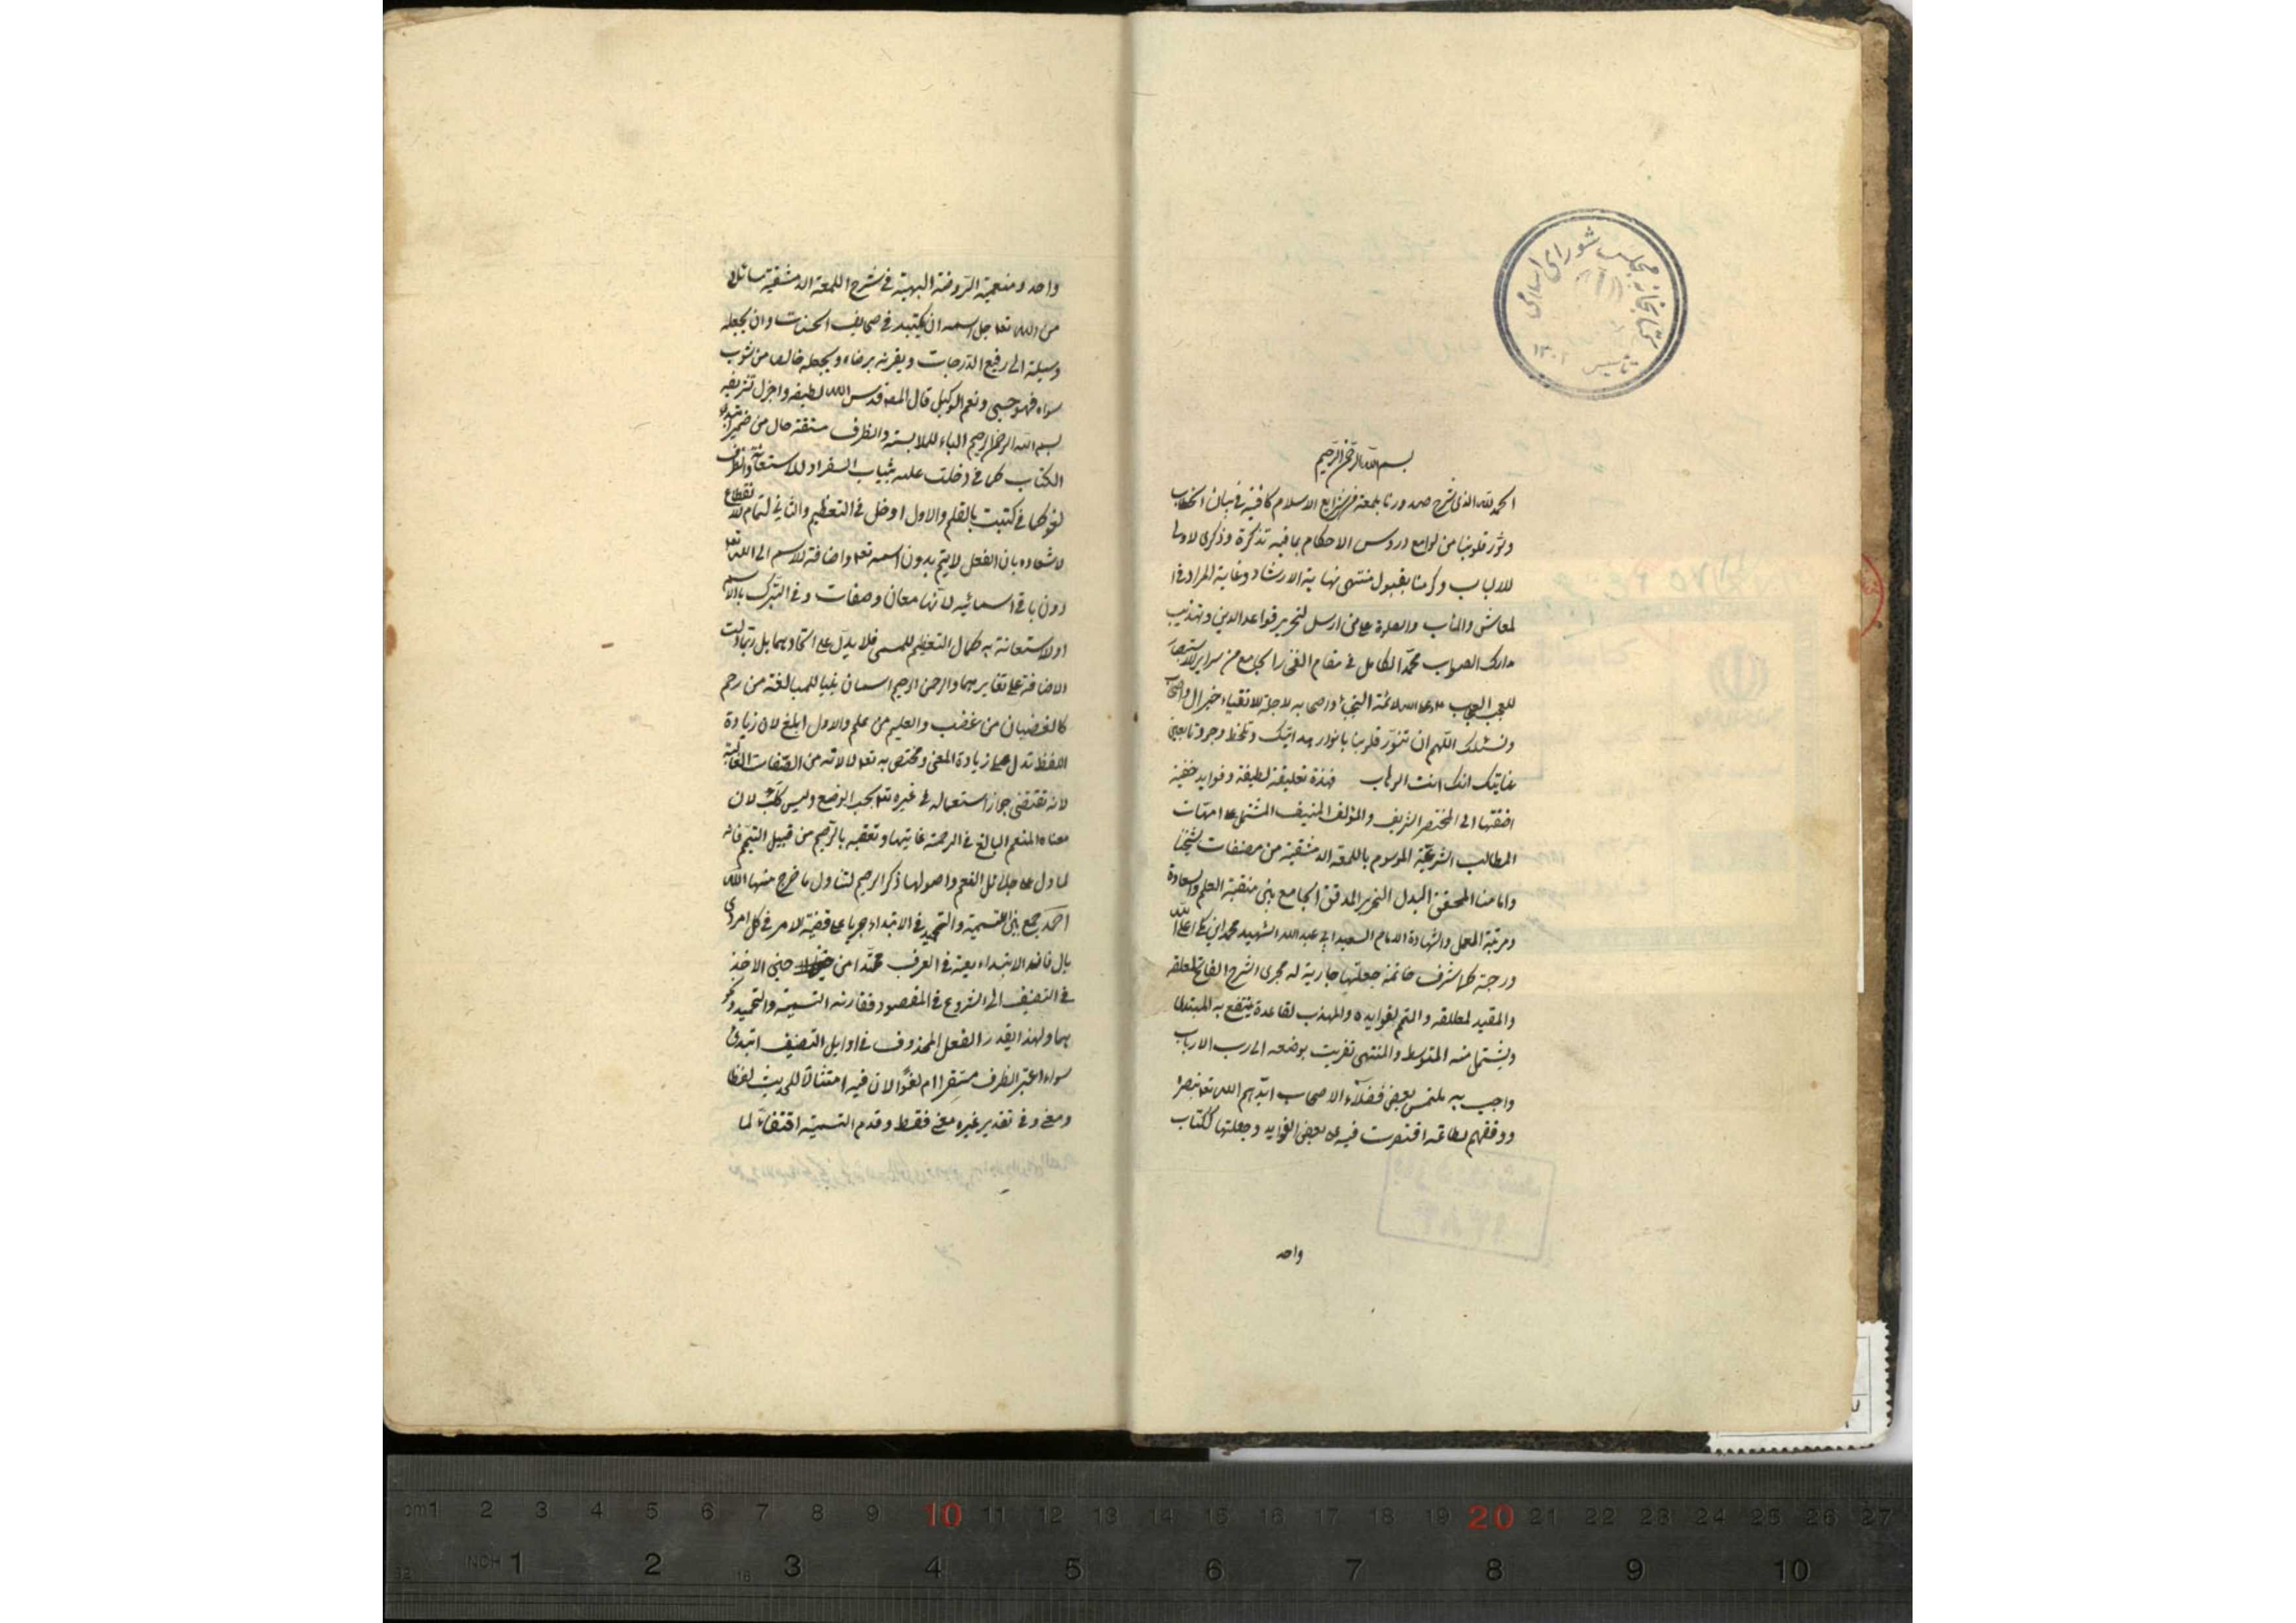 کتابخانه مجلس شورای اسلامی
تاسیس ۱۳۰۲
بسم الله الرحمن الرحيم
الحمد لله الذى شرح صدورنا بلمعة من شرايع الاسلام كافية فى بيان الخطاب
ونور قلوبنا من لوامع دروس الاحكام بما فيه تذكرة وذكرى لاولى
للالباب وكرمنا بقبول منتهى نهاية الارشاد وغاية المراد فى ا
لمعاش والمأب والصلوة على من ارسل لتحرير قواعد الدين وتهذيب
مدارك الصواب محمد الكامل فى مقام الفخر الجامع من سراير الاستبصار
للعجب العجاب وعلى الائمة النجباء واصحابه الاجلة الاتقياء خير ال واصحاب
ونسئلك اللهم ان تنور قلوبنا بانوار هدايتك وتلحظ وجودنا بعين
عنايتك انك انت الوهاب فهذه تعليقة لطيفة وفوايد خفيفة
اضفتها الى المختصر الشريف والمؤلف المنيف المشتمل على امهات
المطالب الشرعية الموسوم باللمعة الدمشقية من مصنفات شيخنا
وامامنا المحقق البدل النحرير المدقق الجامع بين منقبة العلم والسعادة
ومرتبة العمل والشهادة الامام السعيد ابى عبد الله الشهيد محمد ابن مكى اعلى الله
درجته كما شرف خاتمته جعلتها جارية له مجرى الشرح الفاتح لمغلقه
والمقيد لمطلقه والمتمم لفوايده والمهذب لقاعدة ينتفع به المبتدى
ويستمل منه المتوسط والمنتهى تقربت بوضعه الى رب الارباب
واجبت به ملتمس بعض فضلاء الاصحاب ايدهم الله تعا بنصره
ووفقهم لطاعته اقتصرت فيه على بعض الفوايد وجعلتها ككتاب
واحد
واحد ومنعمته الروضة البهية فى شرح اللمعة الدمشقية سائلا
من الله تعا جل اسمه ان يكتبه فى صحايف الحسنات وان يجعله
وسيلة الى رفيع الدرجات ويقرنه برضاه ويجعله خالصا من شوب
سواه فهو حسبى ونعم الوكيل قال المصـ قدس الله لطيفه واجزل تشريفه
بسم الله الرحمن الرحيم الباء للملابسة والظرف مستقر حال من ضمير ابتدئ
الكتاب كما فى دخلت عليه بثياب السفر او للاستعانة والظرف
لغو كما فى كتبت بالقلم والاول ادخل فى التعظيم والثانى لتمام الانقطاع
لاشعاره بان الفعل لا يتم بدون اسمه تعا واضافة الاسم الى الله تعا
دون باقى اسمائه لانها معان وصفات وفى التبرك بالاسم
او الاستعانة به كمال التعظيم للمسمى فلا يدل على اتحادهما بل ربما دلت
الاضافة على تغايرهما والرحمن الرحيم اسمان بنيا للمبالغة من رحم
كالغضبان من غضب والعليم من علم والاول ابلغ لان زيادة
اللفظ تدل على زيادة المعنى ومختص به تعا لا لانه من الصفات الغالبة
لانه تقتضى جواز استعماله فى غيره تعا بحسب الوضع وليس كك بل لان
معناه المنعم البالغ فى الرحمة غايتها وتعقبه بالرحيم من قبيل التتميم فانه
لما دل على جلائل النعم واصولها ذكر الرحيم لتناول ما خرج منها الله
احمد جمع بين التسمية والتحميد فى الابتداء جريا على قضية الامر فى كل امر ذى
بال فان الابتداء يعتبر فى العرف ممتدا من حين الاخذ
فى التصنيف الى الشروع فى المقصود فقارنه التسمية والتحميد ونحو
هما ولهذا يقدر الفعل المحذوف فى اوايل التصنيف ابتدئ
سواء اعتبر الظرف مستقرا ام لغوا لان فيه امتثالا للحديث لفظا
ومعنى وفى تقدير غيره معنى فقط وقدم التسمية اقتفاء لما